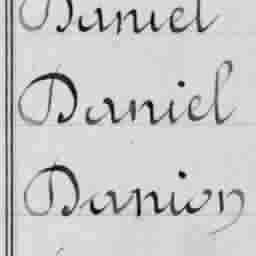 Daniel
Daniel
Danion